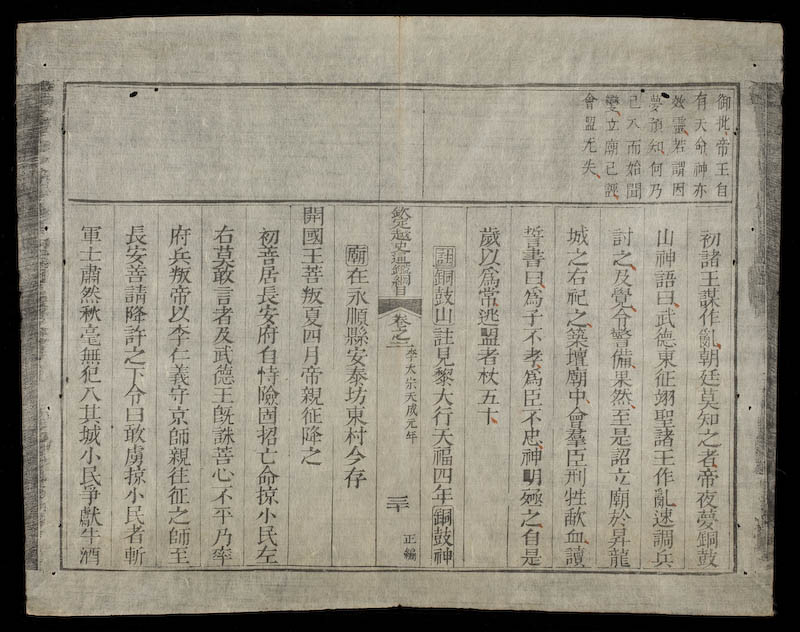 御批帝王自
有天命神亦
效靈若謂因
夢預知何乃
已入而始聞
變立廟已誣
會盟尤失
初諸王謀作亂朝廷莫知之者帝夜夢銅鼓
山神語曰武德東征翊聖諸王作亂速調兵
討之及覺令警備果然至是詔立廟於昇龍
城之右祀之築壇廟中會羣臣刑牲歃血讀
誓書曰爲子不孝爲臣不忠神明殛之自是
歲以爲常逃盟者杖五十
註銅鼓山註見黎大行天福四年銅鼓神
廟在永順縣安泰坊東村今存
欽定越史通鑑綱目 卷之二 李太宗天成元年 三十 正編
開國王菩叛夏四月帝親征降之
初菩居長安府自恃險固招亡命掠小民左
右莫敢言者及武德王旣誅菩心不平乃率
府兵叛帝以李仁義守京師親往征之師至
長安菩請降許之下令曰敢虜掠小民者斬
軍士肅然秋毫無犯入其城小民爭獻牛酒